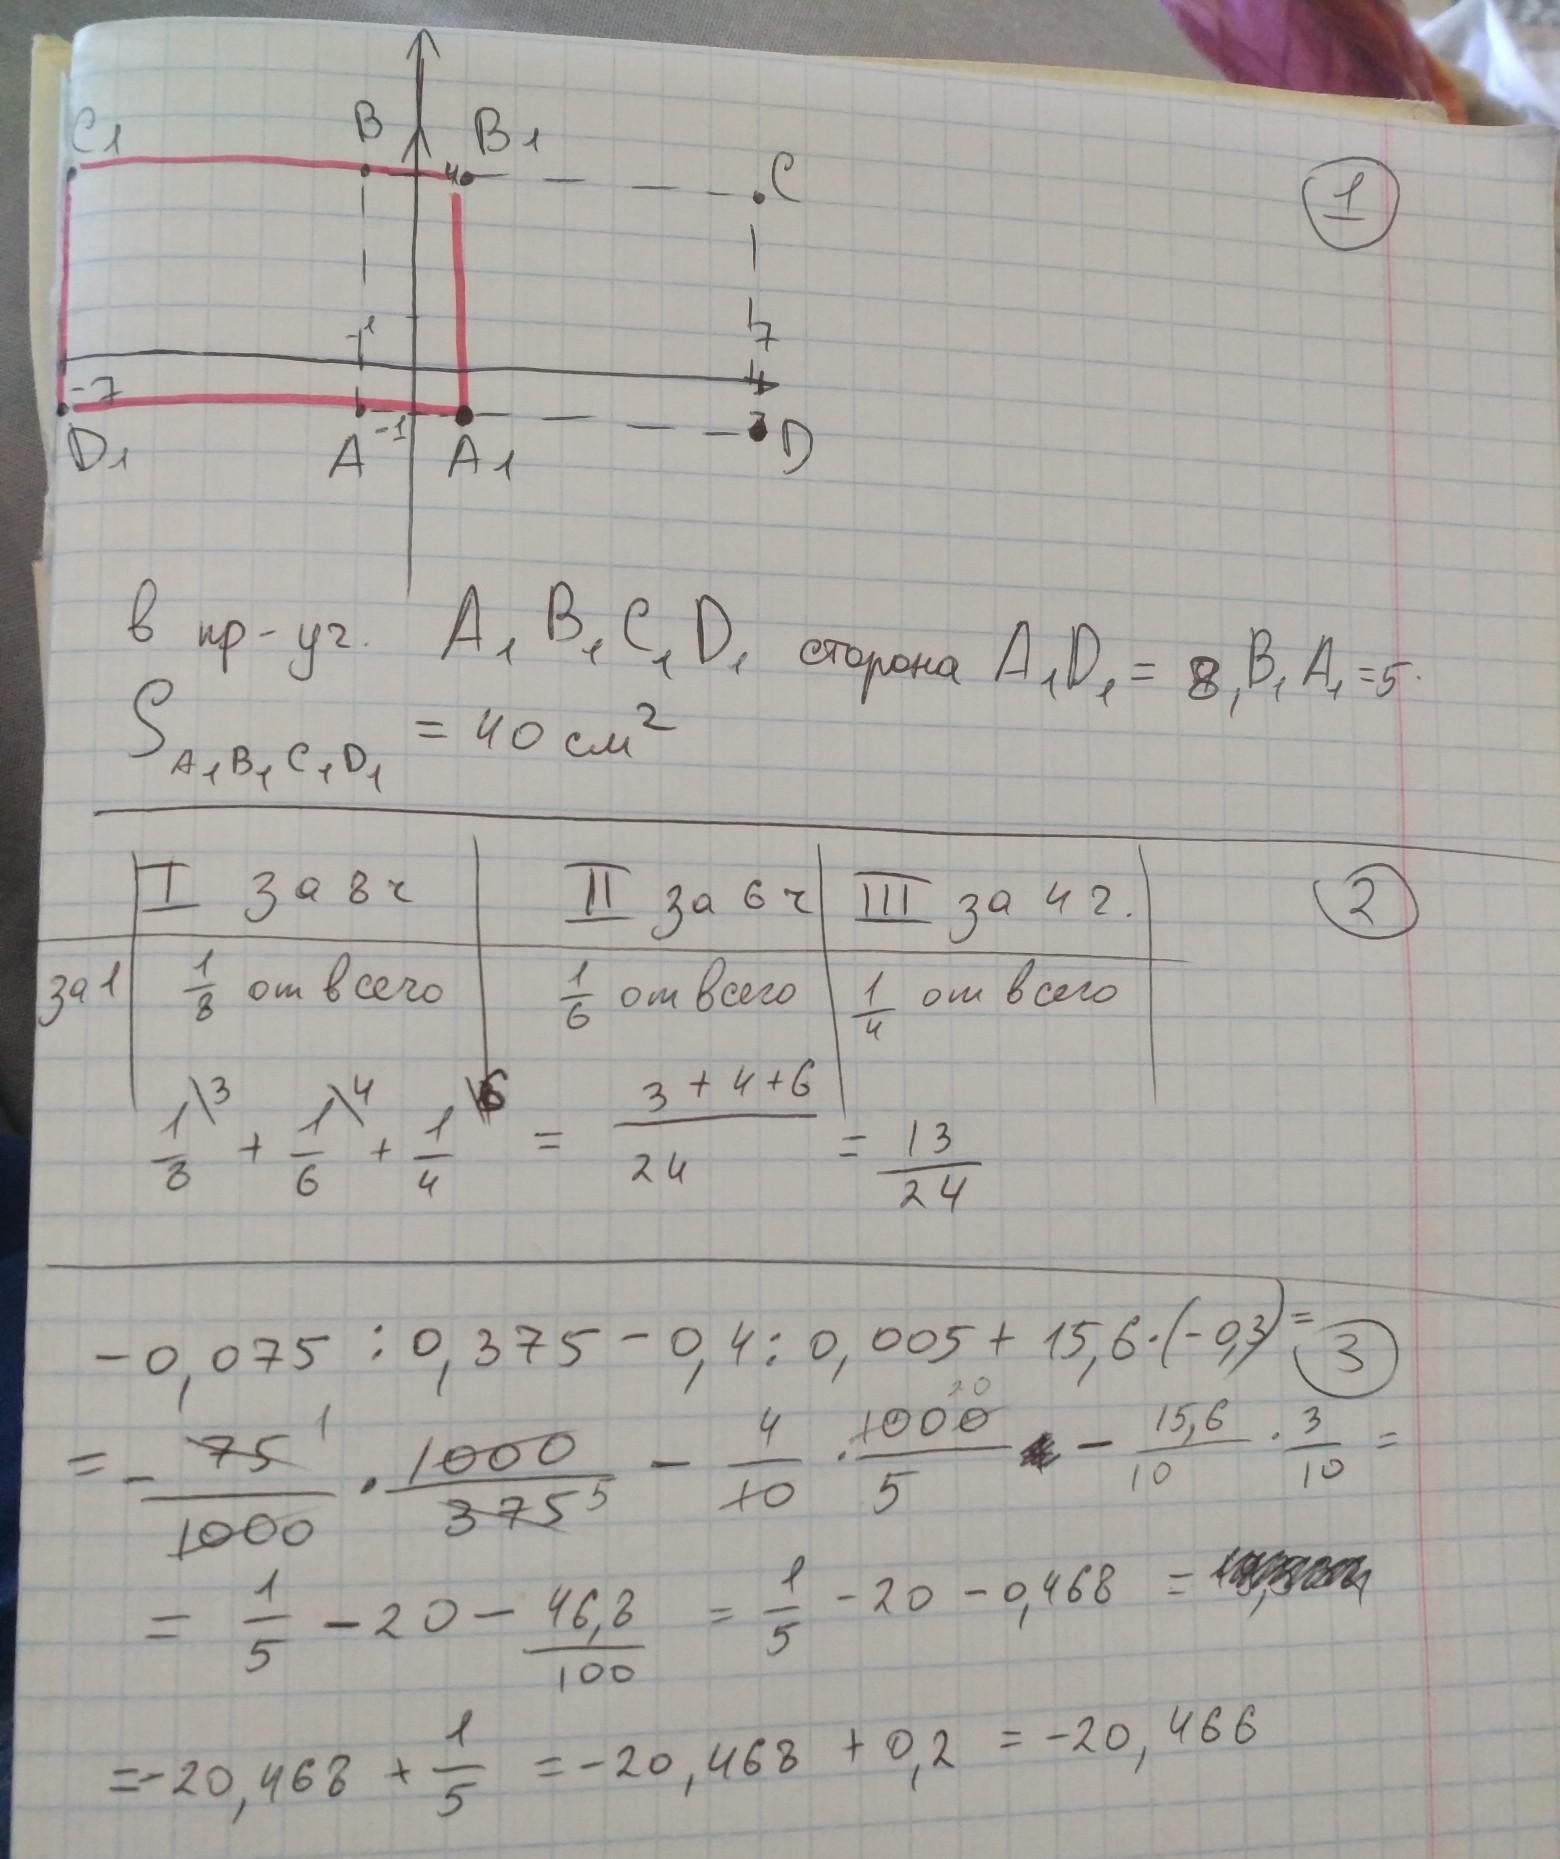 C1 B B1 C
4
1
-1 7
-7
D1 A -1 A1 D
в пр-уг. A₁B₁C₁D₁ сторона A₁D₁ = 8, B₁A₁ = 5.
S A₁B₁C₁D₁ = 40 см²
I за 8 ч II за 6 ч III за 4 ч. 2
за 1 1/8 от всего 1/6 от всего 1/4 от всего
1/8 \3 + 1/6 \4 + 1/4 \6 = (3+4+6)/24 = 13/24
-0,075 : 0,375 - 0,4 : 0,005 + 15,6 · (-0,3) = 3
= - 75 1/1000 · 1000/375 5 - 4/10 · 1000 20/5 - 15,6/10 · 3/10 =
= 1/5 - 20 - 46,8/100 = 1/5 - 20 - 0,468 =
= -20,468 + 1/5 = -20,468 + 0,2 = -20,466